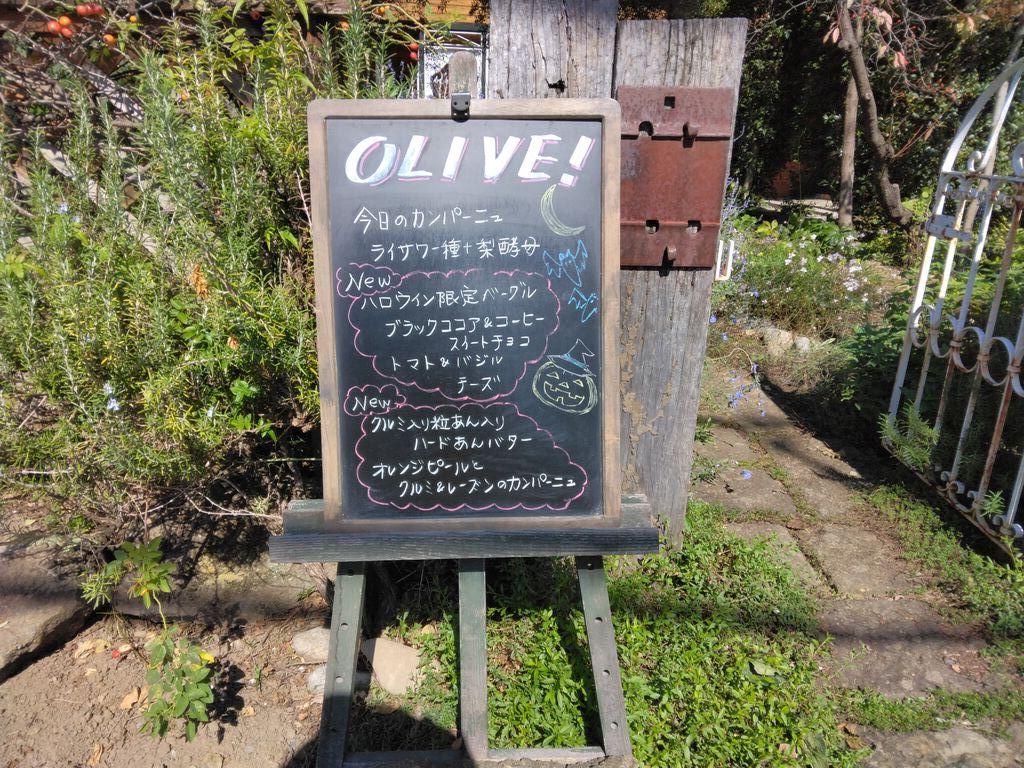 OLIVE!
今日のカンパーニュ
ライサワー種+梨酵母
New
ハロウイン限定ベーグル
ブラックココア&コーヒー
スイートチョコ
トマト&バジル
チーズ
New
クルミ入り粒あん入り
ハードあんバター
オレンジピールと
クルミ&レーズンのカンパーニュ